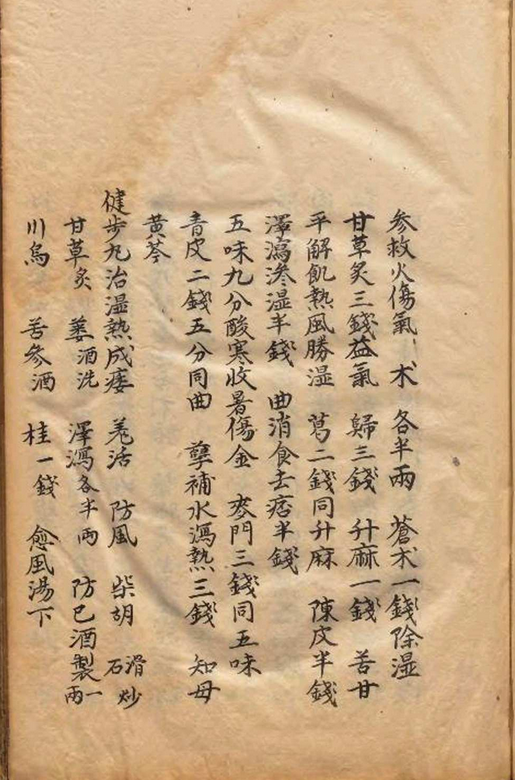 参救火傷氣 术 各半兩 蒼术一錢除湿
甘草炙三錢益氣 歸三錢 升麻一錢 苦甘
平解飢熱風勝湿 葛二錢同升麻 陳皮半錢
澤瀉滲湿半錢 曲消食去痞半錢
五味九分酸寒收暑傷金 麥門三錢同五味
青皮二錢五分同曲 孽補水瀉熱三錢 知母
黄芩
健步丸治湿熱成痿 羗活 防風 柴胡 滑石炒一兩
甘草炙 蔞酒洗 澤瀉各半兩 防已酒製
川烏 苦參酒 桂一錢 愈風湯下